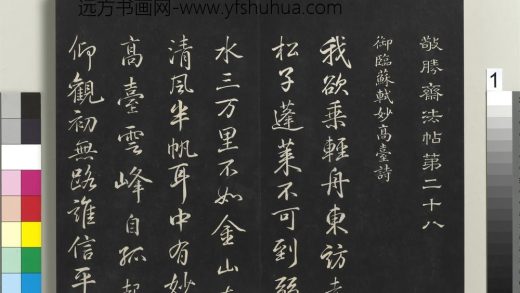 远方书画网-www.yfshuhua.com
1
敬勝齋法帖第二十八
御臨蘇軾妙高臺詩
我欲乘輕舟東訪
松子蓬莱不可到
水三万里不如金山
清風半帆耳中有妙
高臺雲峰自孤起
仰觀初無路誰信平